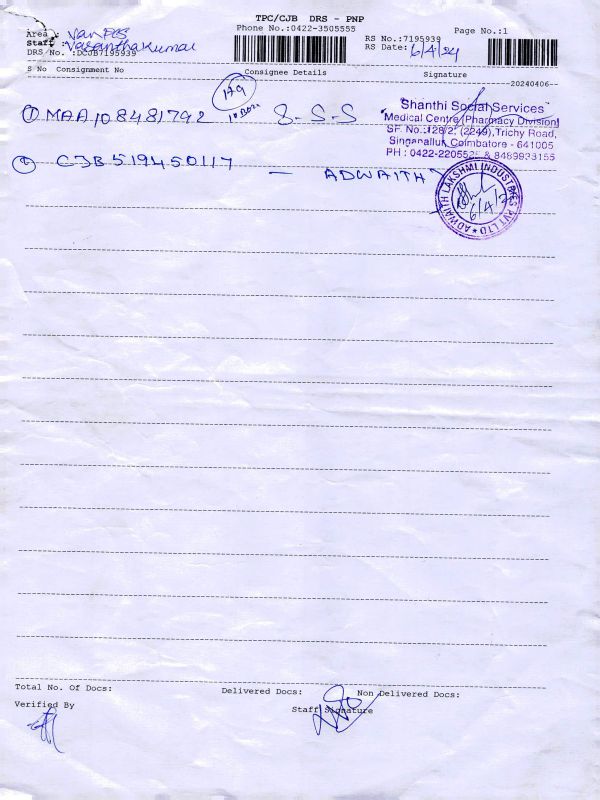 TPC/CJB DRS - PNP
Phone No.:0422-3505555
Page No.:1
Area :
Staff : Vasanthakumar
RS No.:7195939
DRS No. :DCJB7195939
RS Date: 6/4/24
S No Consignment No Consignee Details Signature
--20240406--
179
① MAA108481792 10 Box S-S-S
Shanthi Social Services
Medical Centre (Pharmacy Division)
SF. No.:128/2, (2249),Trichy Road,
Singanallur, Coimbatore - 641005
PH : 0422-2205525 & 8489933155
CJB519450117 — ADWAITH
ADWAITH LAKSHMI INDUSTRIES PVT LTD
6/4/2
Total No. Of Docs: Delivered Docs: Non Delivered Docs:
Verified By Staff Signature